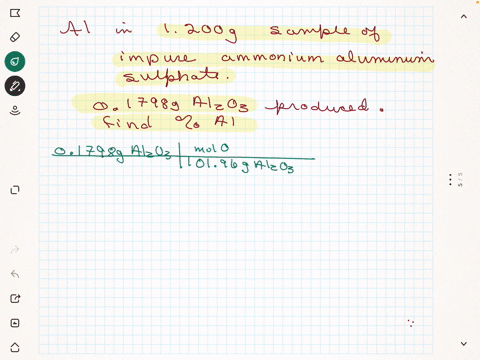 Al in 1.200g sample of
impure ammonium aluminum
sulphate.
0.1798g Al2O3 produced.
find % Al
0.1798g Al2O3 | mol O
101.96 g Al2O3
5/5